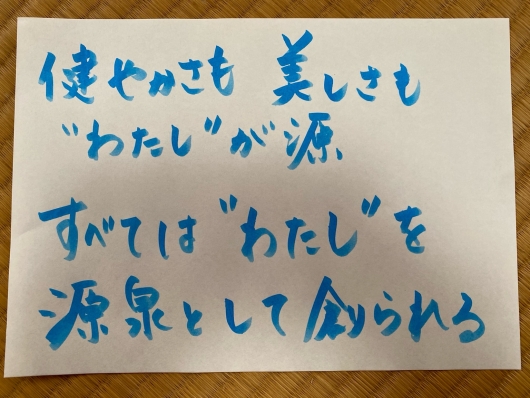 健やかさも 美しさも
"わたし"が源
すべては"わたし"を
源泉として創られる